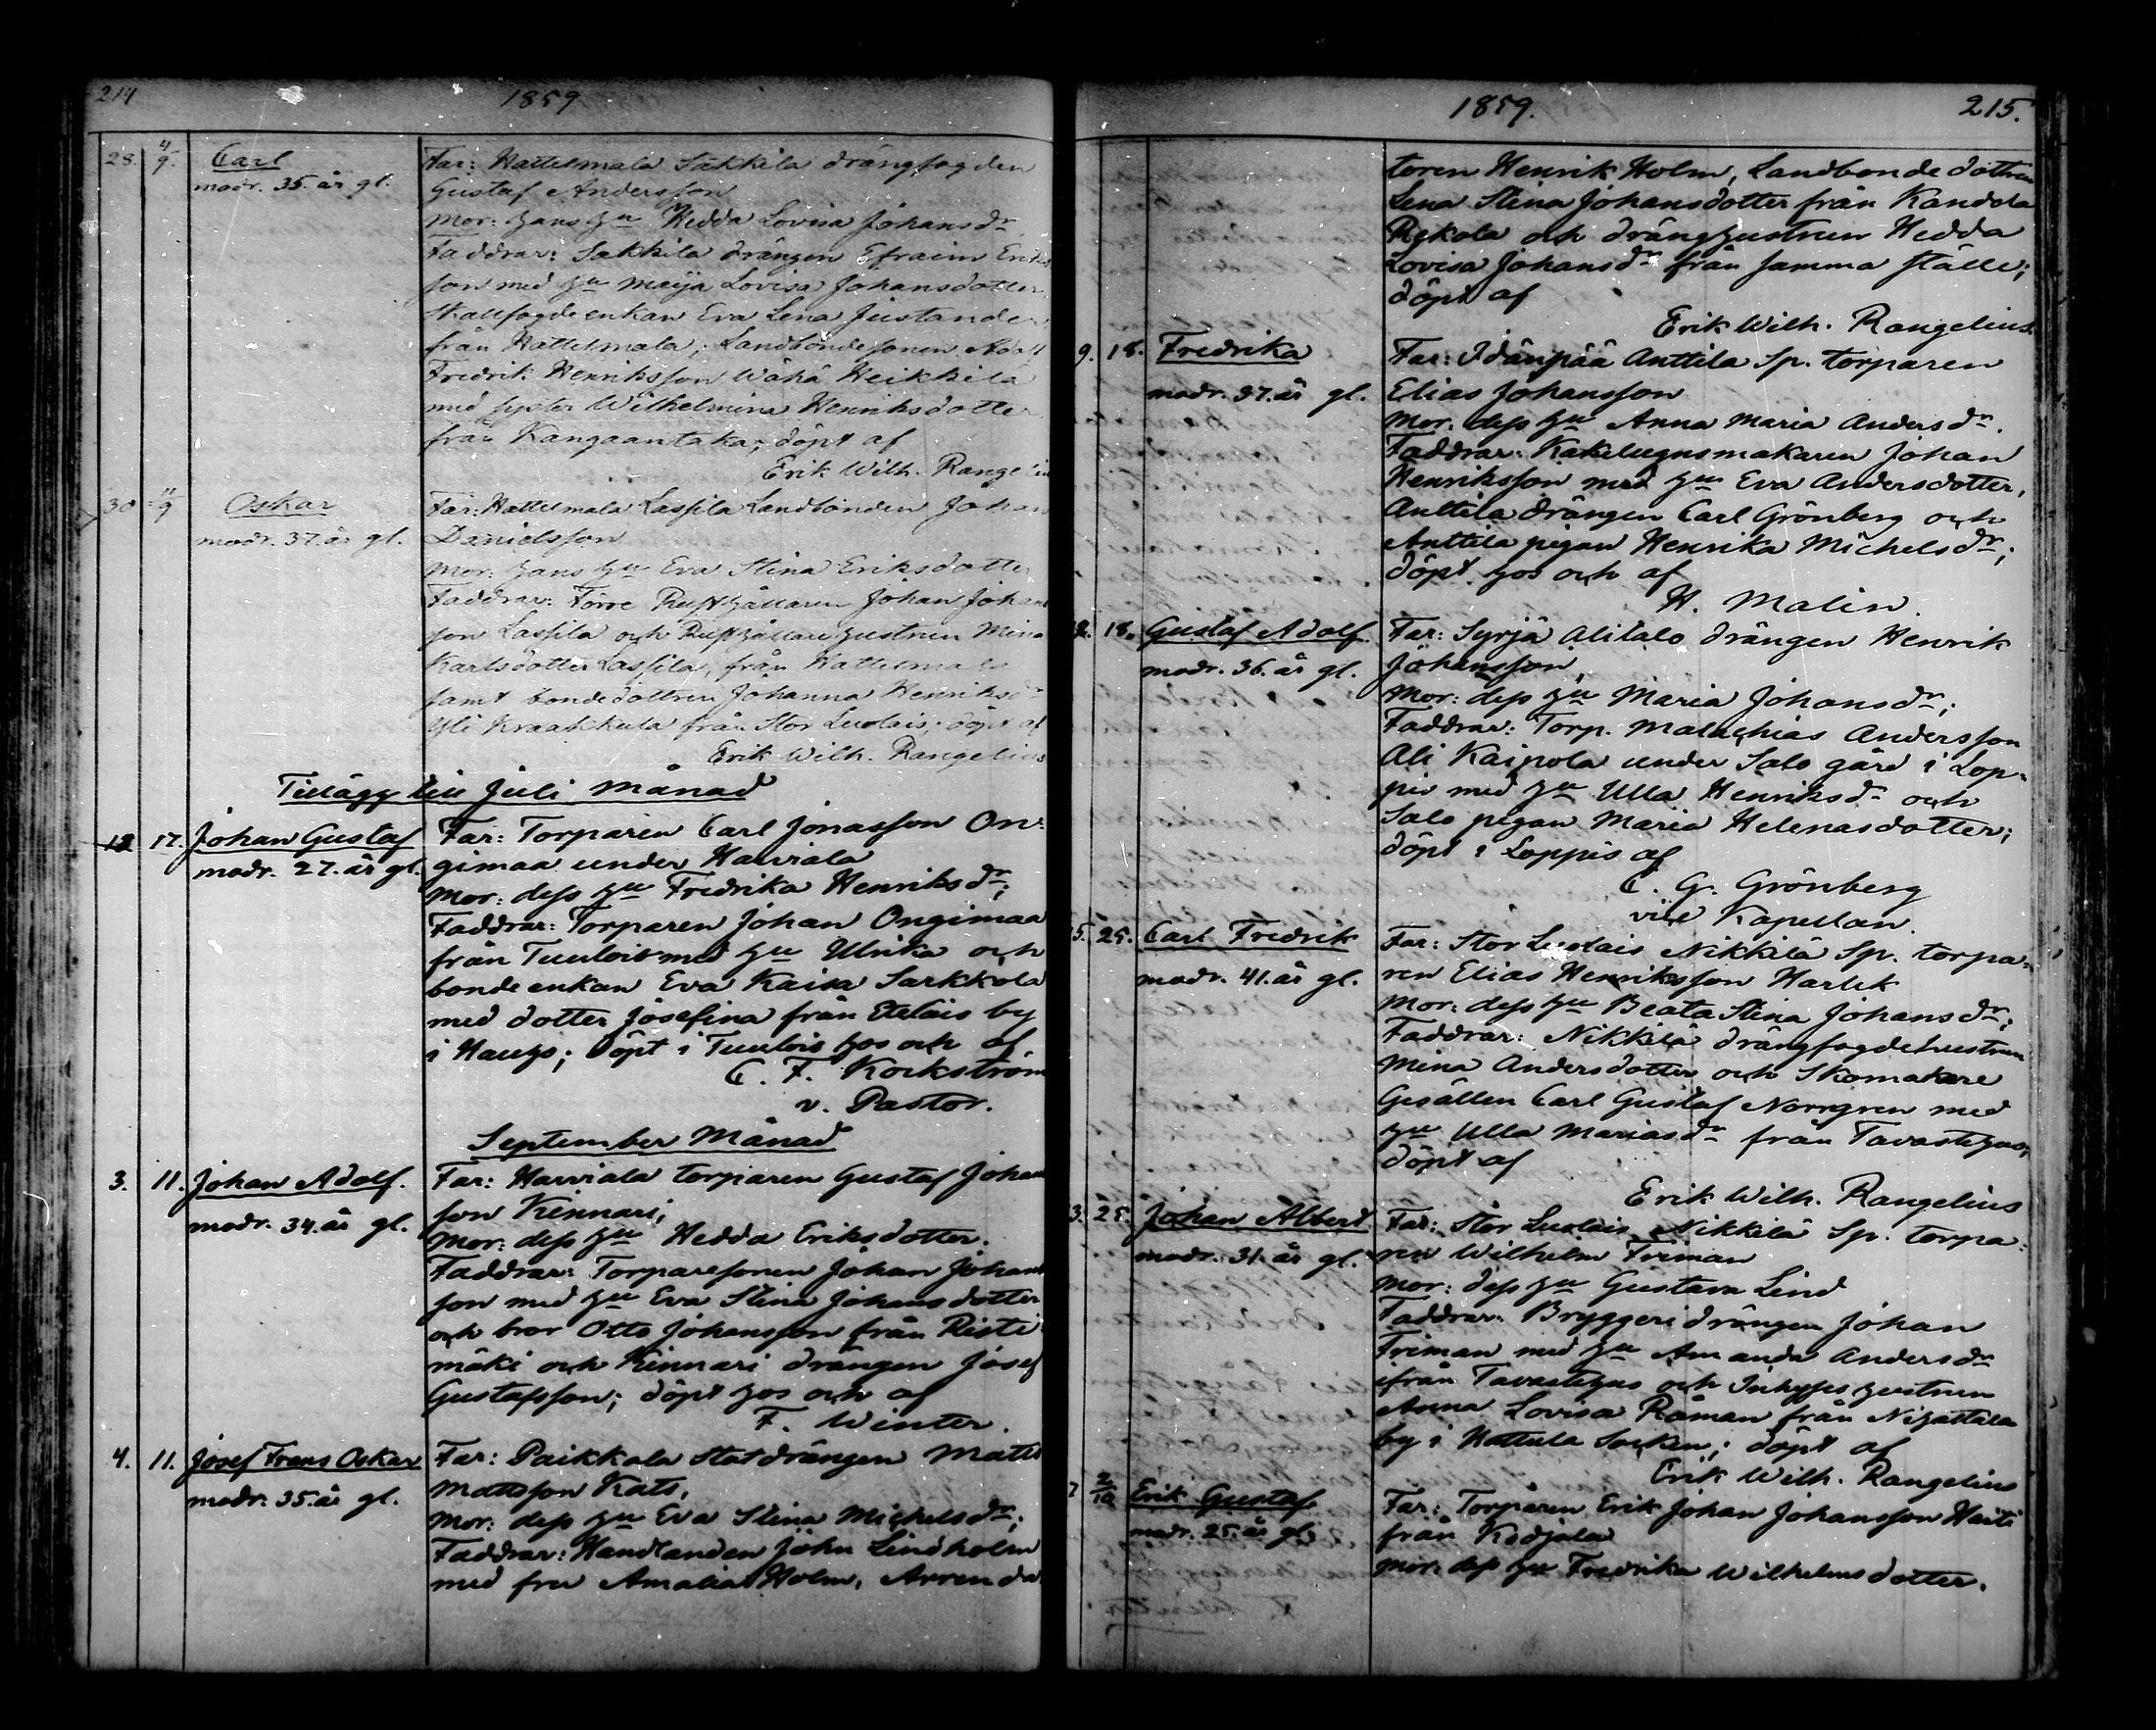 214
1859
28. 4/9. Carl
modr. 35. år gl.
Far: Hattelmala Sakkila drängfogden
Gustaf Andersson
Mor: hans hu Hedda Lovisa Johansdr
Faddrar: Sakkila drängen Efraim Eriks
son med hu Maija Lovisa Johansdotter
enkan Eva Lena Justander
från Hattelmala, Landbondesonen Adolf
Fredrik Henriksson Wähä Heikkilä
med syster Wilhelmina Henriksdotter
från Kangaantaka; döpt af
Erik Wilh. Rangelius
30 11/9 Oskar
modr. 37. år gl.
Far: Hattelmala Lassila Landbonden Johan
Danielsson
Mor: hans hu Eva Stina Eriksdotter
Faddrar: Förre Rusthållaren Johan Johans
son Lassila och Rusthållare hustrun Mina
Karlsdotter Lassila, från Hattelmala
samt bondedottren Johanna Henriksdr
Yli Kraakkula från Stor Luolais; döpt af
Erik Wilh. Rangelius
Tillägg till Juli Månad
12 17. Johan Gustaf
modr. 27. år gl.
Far: Torparen Carl Jonasson On-
gimaa under Harviala
Mor: dess hu Fredrika Henriksdr;
Faddrar: Torparen Johan Ongimaa
från Tuulois med hu Ulrika och
bonde enkan Eva Kaisa Sarkkola
med dotter Josefina från Etelais by
i Hauho; döpt i Tuulois hos och af
C. F. Kockström
v. Pastor.
September Månad
3. 11. Johan Adolf.
modr. 34. år gl.
Far: Harviala torparen Gustaf Johans
son Kinnari,
Mor: dess hu Hedda Eriksdotter.
Faddrar: Torparesonen Johan Johans
son med hu Eva Stina Johansdotter
och bror Otto Johansson från Risti
mäki och Kinnari drängen Josef
Gustafsson; döpt hos och af
F. Winter.
4. 11. Josef Frans Oskar
modr. 35. år gl.
Far: Paikkala Statdrängen Matts
Mattsson Kats,
Mor: dess hu Eva Stina Michelsdr;
Faddrar: Handlanden John Lindholm
med fru Amalia Holm, Arrenda
1859.
215.
toren Henrik Holm, Landbondedottren
Lena Stina Johansdotter från Kandola
Rekola och dränghustrun Hedda
Lovisa Johansdr från samma ställe;
döpt af
Erik Wilh. Rangelius
9. 18. Fredrika
modr. 37. år gl.
Far: Idänpää Anttila Sp. torparen
Elias Johansson
Mor: dess hu Anna Maria Andersdr.
Faddrar: Kakelugnsmakaren Johan
Henriksson med hu Eva Andersdotter,
Anttila drängen Carl Grönberg och
Anttila pigan Henrika Michelsdr;
döpt hos och af
H. Malin.
12. 18. Gustaf Adolf.
modr. 36. år gl.
Far: Syrjä Alitalo drängen Henrik
Johansson,
Mor: dess hu Maria Johansdr;
Faddrar: Torp. Malachias Andersson
Ali Kaipola under Salo gård i Lop-
pis med hu Ulla Henriksdr och
Salo pigan Maria Helenasdotter;
döpt i Loppis af
C. G. Grönberg
vice Kapellan.
5. 25. Carl Fredrik
modr. 41. år gl.
Far: Stor Luolais Nikkilä Sp. torpa-
ren Elias Henriksson Harlek
Mor: dess hu Beata Stina Johansdr;
Faddrar: Nikkilä drängfogdehustrun
Mina Andersdotter och Skomakare
Gesällen Carl Gustaf Norrgren med
hu Ulla Mariasdr från Tavastehus,
döpt af
Erik Wilh. Rangelius
3. 25. Johan Albert
modr. 31. år gl.
Far: Stor Luolais Nikkilä Sp. torpa-
ren Wilhelm Friman
Mor: dess hu Gustava Lind
Faddrar: Bryggeridrängen Johan
Friman med hu Amanda Andersdr
ifrån Tavastehus och Inhyses hustrun
Anna Lovisa Råman från Nihattula
by i Hattula Socken; döpt af
Erik Wilh. Rangelius
7 2/10 Erik Gustaf
modr. 25. år gl.
Far: Torparen Erik Johan Johansson Haiti
från Kodjala
Mor: dess hu Fredrika Wilhelmsdotter.